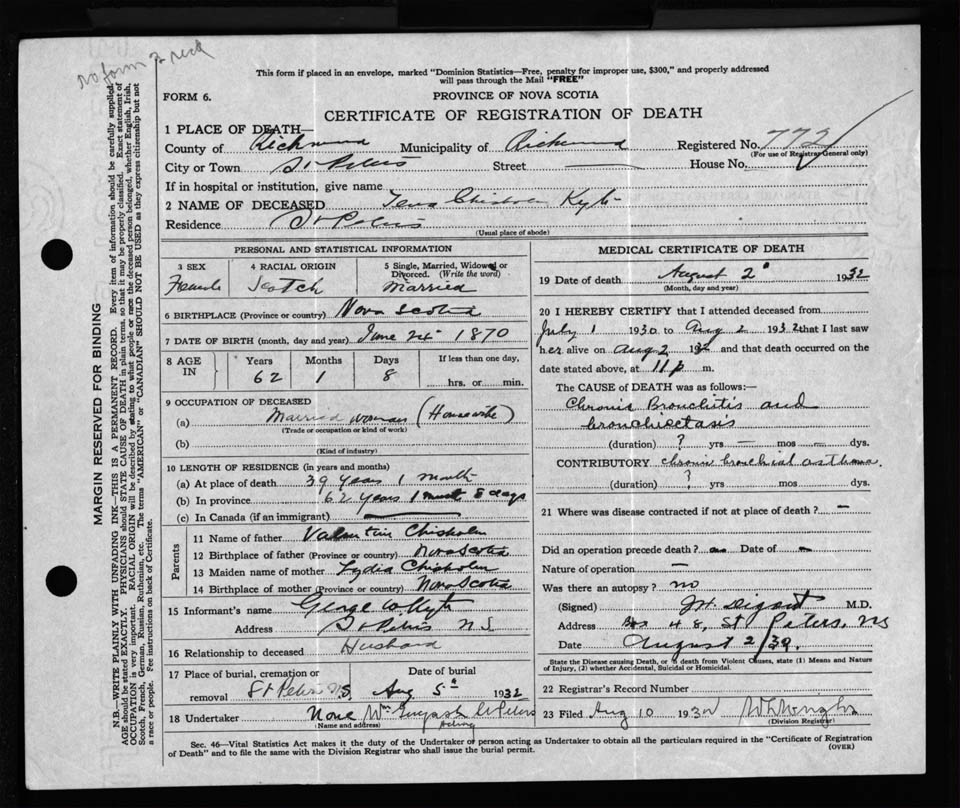 no form 2 recd
This form if placed in an envelope, marked "Dominion Statistics—Free, penalty for improper use, $300," and properly addressed
will pass through the Mail "FREE"
FORM 6.
PROVINCE OF NOVA SCOTIA
CERTIFICATE OF REGISTRATION OF DEATH
1 PLACE OF DEATH—
County of Richmond Municipality of Richmond Registered No. 772
(For use of Registrar General only)
City or Town St Peters Street — House No.
If in hospital or institution, give name
2 NAME OF DECEASED Tena Chisholm Kyte
Residence St Peters
(Usual place of abode)
PERSONAL AND STATISTICAL INFORMATION
3 SEX 4 RACIAL ORIGIN 5 Single, Married, Widowed or Divorced. (Write the word)
Female Scotch Married
6 BIRTHPLACE (Province or country) Nova Scotia
7 DATE OF BIRTH (month, day and year) June 24 1870
8 AGE IN Years Months Days If less than one day,
62 1 8 hrs. or min.
9 OCCUPATION OF DECEASED
(a) Married woman (Housewife)
(Trade or occupation or kind of work)
(b)
(Kind of industry)
10 LENGTH OF RESIDENCE (in years and months)
(a) At place of death 39 years 1 month
(b) In province 62 years 1 month 8 days
(c) In Canada (if an immigrant)
Parents
11 Name of father Valentine Chisholm
12 Birthplace of father (Province or country) Nova Scotia
13 Maiden name of mother Lydia Chisholm
14 Birthplace of mother (Province or country) Nova Scotia
15 Informant's name George W Kyte
Address St Peters N S
16 Relationship to deceased Husband
17 Place of burial, cremation or removal Date of burial
St Peters N S Aug 5th 1932
18 Undertaker None Wm St Peters
(Name and address) Acting
MEDICAL CERTIFICATE OF DEATH
19 Date of death August 2 1932
(Month, day and year)
20 I HEREBY CERTIFY that I attended deceased from
July 1 1930 to Aug 2 1932 that I last saw
her alive on Aug 2 1932 and that death occurred on the
date stated above, at 11 p m.
The CAUSE of DEATH was as follows:—
Chronic Bronchitis and
bronchiectasis
(duration) ? yrs — mos — dys.
CONTRIBUTORY chronic bronchial asthma
(duration) ? yrs mos dys.
21 Where was disease contracted if not at place of death? —
Did an operation precede death? no Date of —
Nature of operation —
Was there an autopsy? no
(Signed) M.D.
Address Box 48, St Peters, NS
Date August 2/32.
State the Disease causing Death, or in death from Violent Causes, state (1) Means and Nature
of Injury, (2) whether Accidental, Suicidal or Homicidal.
22 Registrar's Record Number
23 Filed Aug 10 1932
(Division Registrar)
Sec. 46—Vital Statistics Act makes it the duty of the Undertaker or person acting as Undertaker to obtain all the particulars required in the "Certificate of Registration
of Death" and to file the same with the Division Registrar who shall issue the burial permit.
(OVER)
MARGIN RESERVED FOR BINDING
N.B.—WRITE PLAINLY WITH UNFADING INK—THIS IS A PERMANENT RECORD. Every item of information should be carefully supplied.
AGE should be stated EXACTLY. PHYSICIANS should STATE CAUSE OF DEATH in plain terms, so that it may be properly classified. Exact statement of
OCCUPATION is very important. RACIAL ORIGIN will be described by stating to what people or race the deceased person belonged, whether English, Irish,
Scotch, French, German, Russian, Ruthenian, etc. The terms "AMERICAN" or "CANADIAN" SHOULD NOT BE USED as they express citizenship but not
a race or people. Fee instructions on back of Certificate.